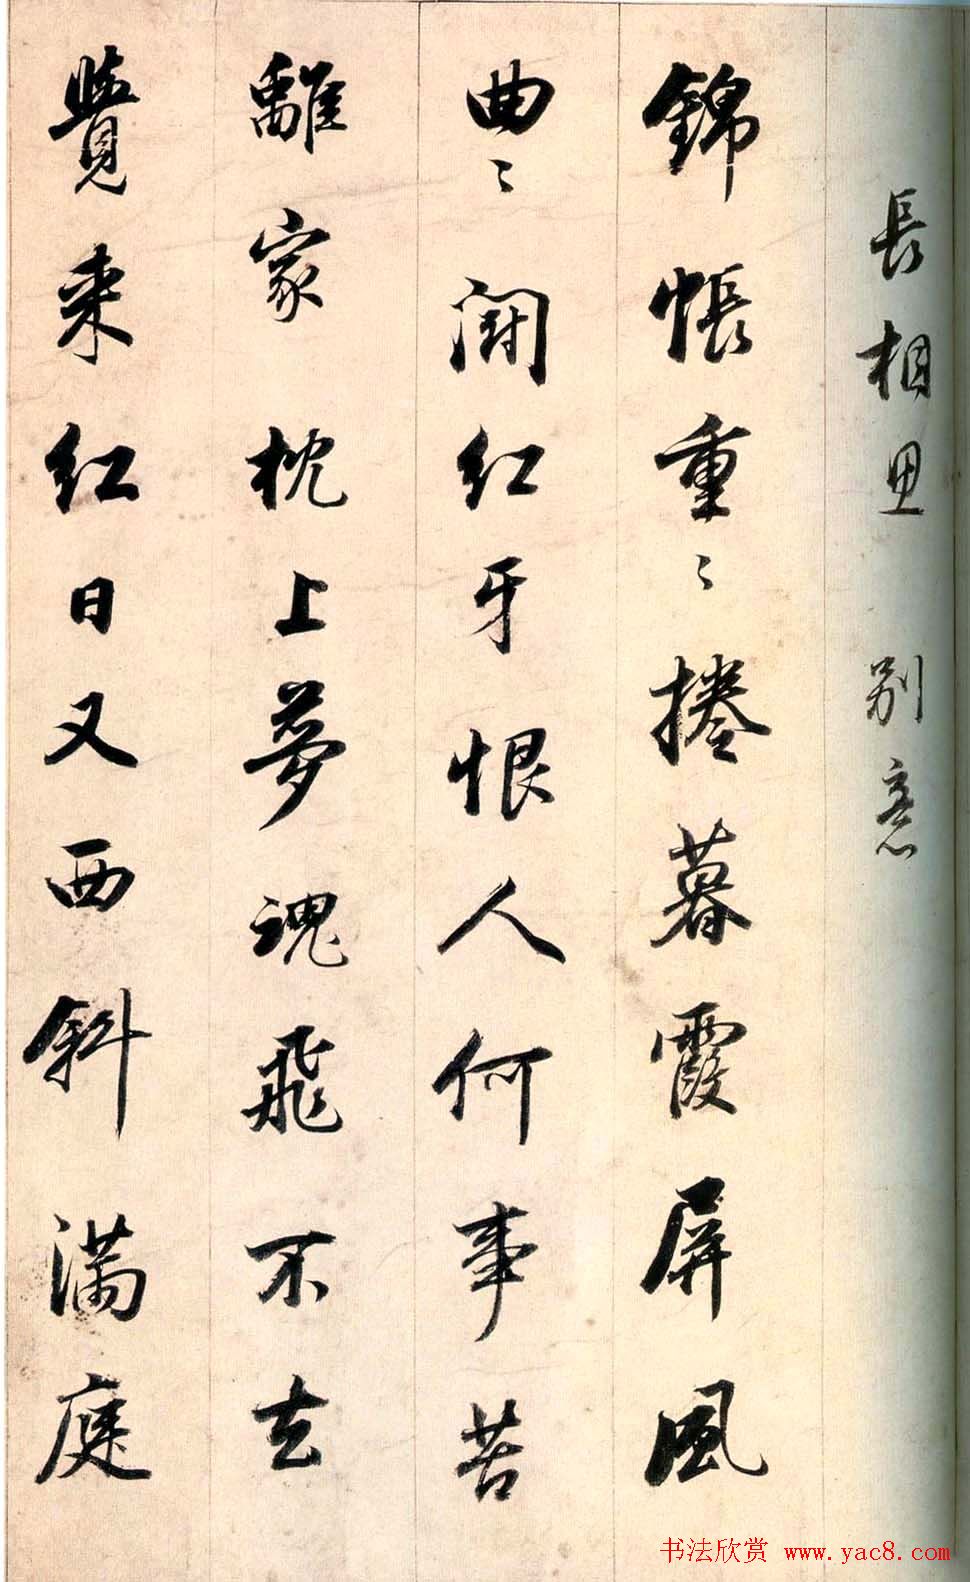 長相思 別意
錦帳重〻捲暮霞屏風
曲〻鬪紅牙恨人何事苦
離家枕上夢魂飛不去
覺来紅日又西斜滿庭
书法欣赏 www.yac8.com